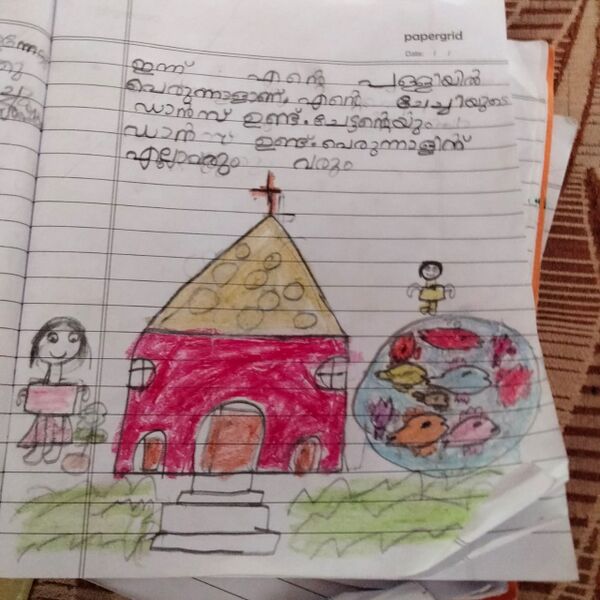 papergrid
Date: / /
ഇന്ന് എന്റെ പള്ളിയിൽ
പെരുന്നാളാണ്, എന്റെ ചേച്ചിയുടെ
ഡാൻസ് ഉണ്ട്. ചേട്ടന്റെയും
ഡാൻസ് ഉണ്ട്. പെരുന്നാളിന്
എല്ലാവരും വരും